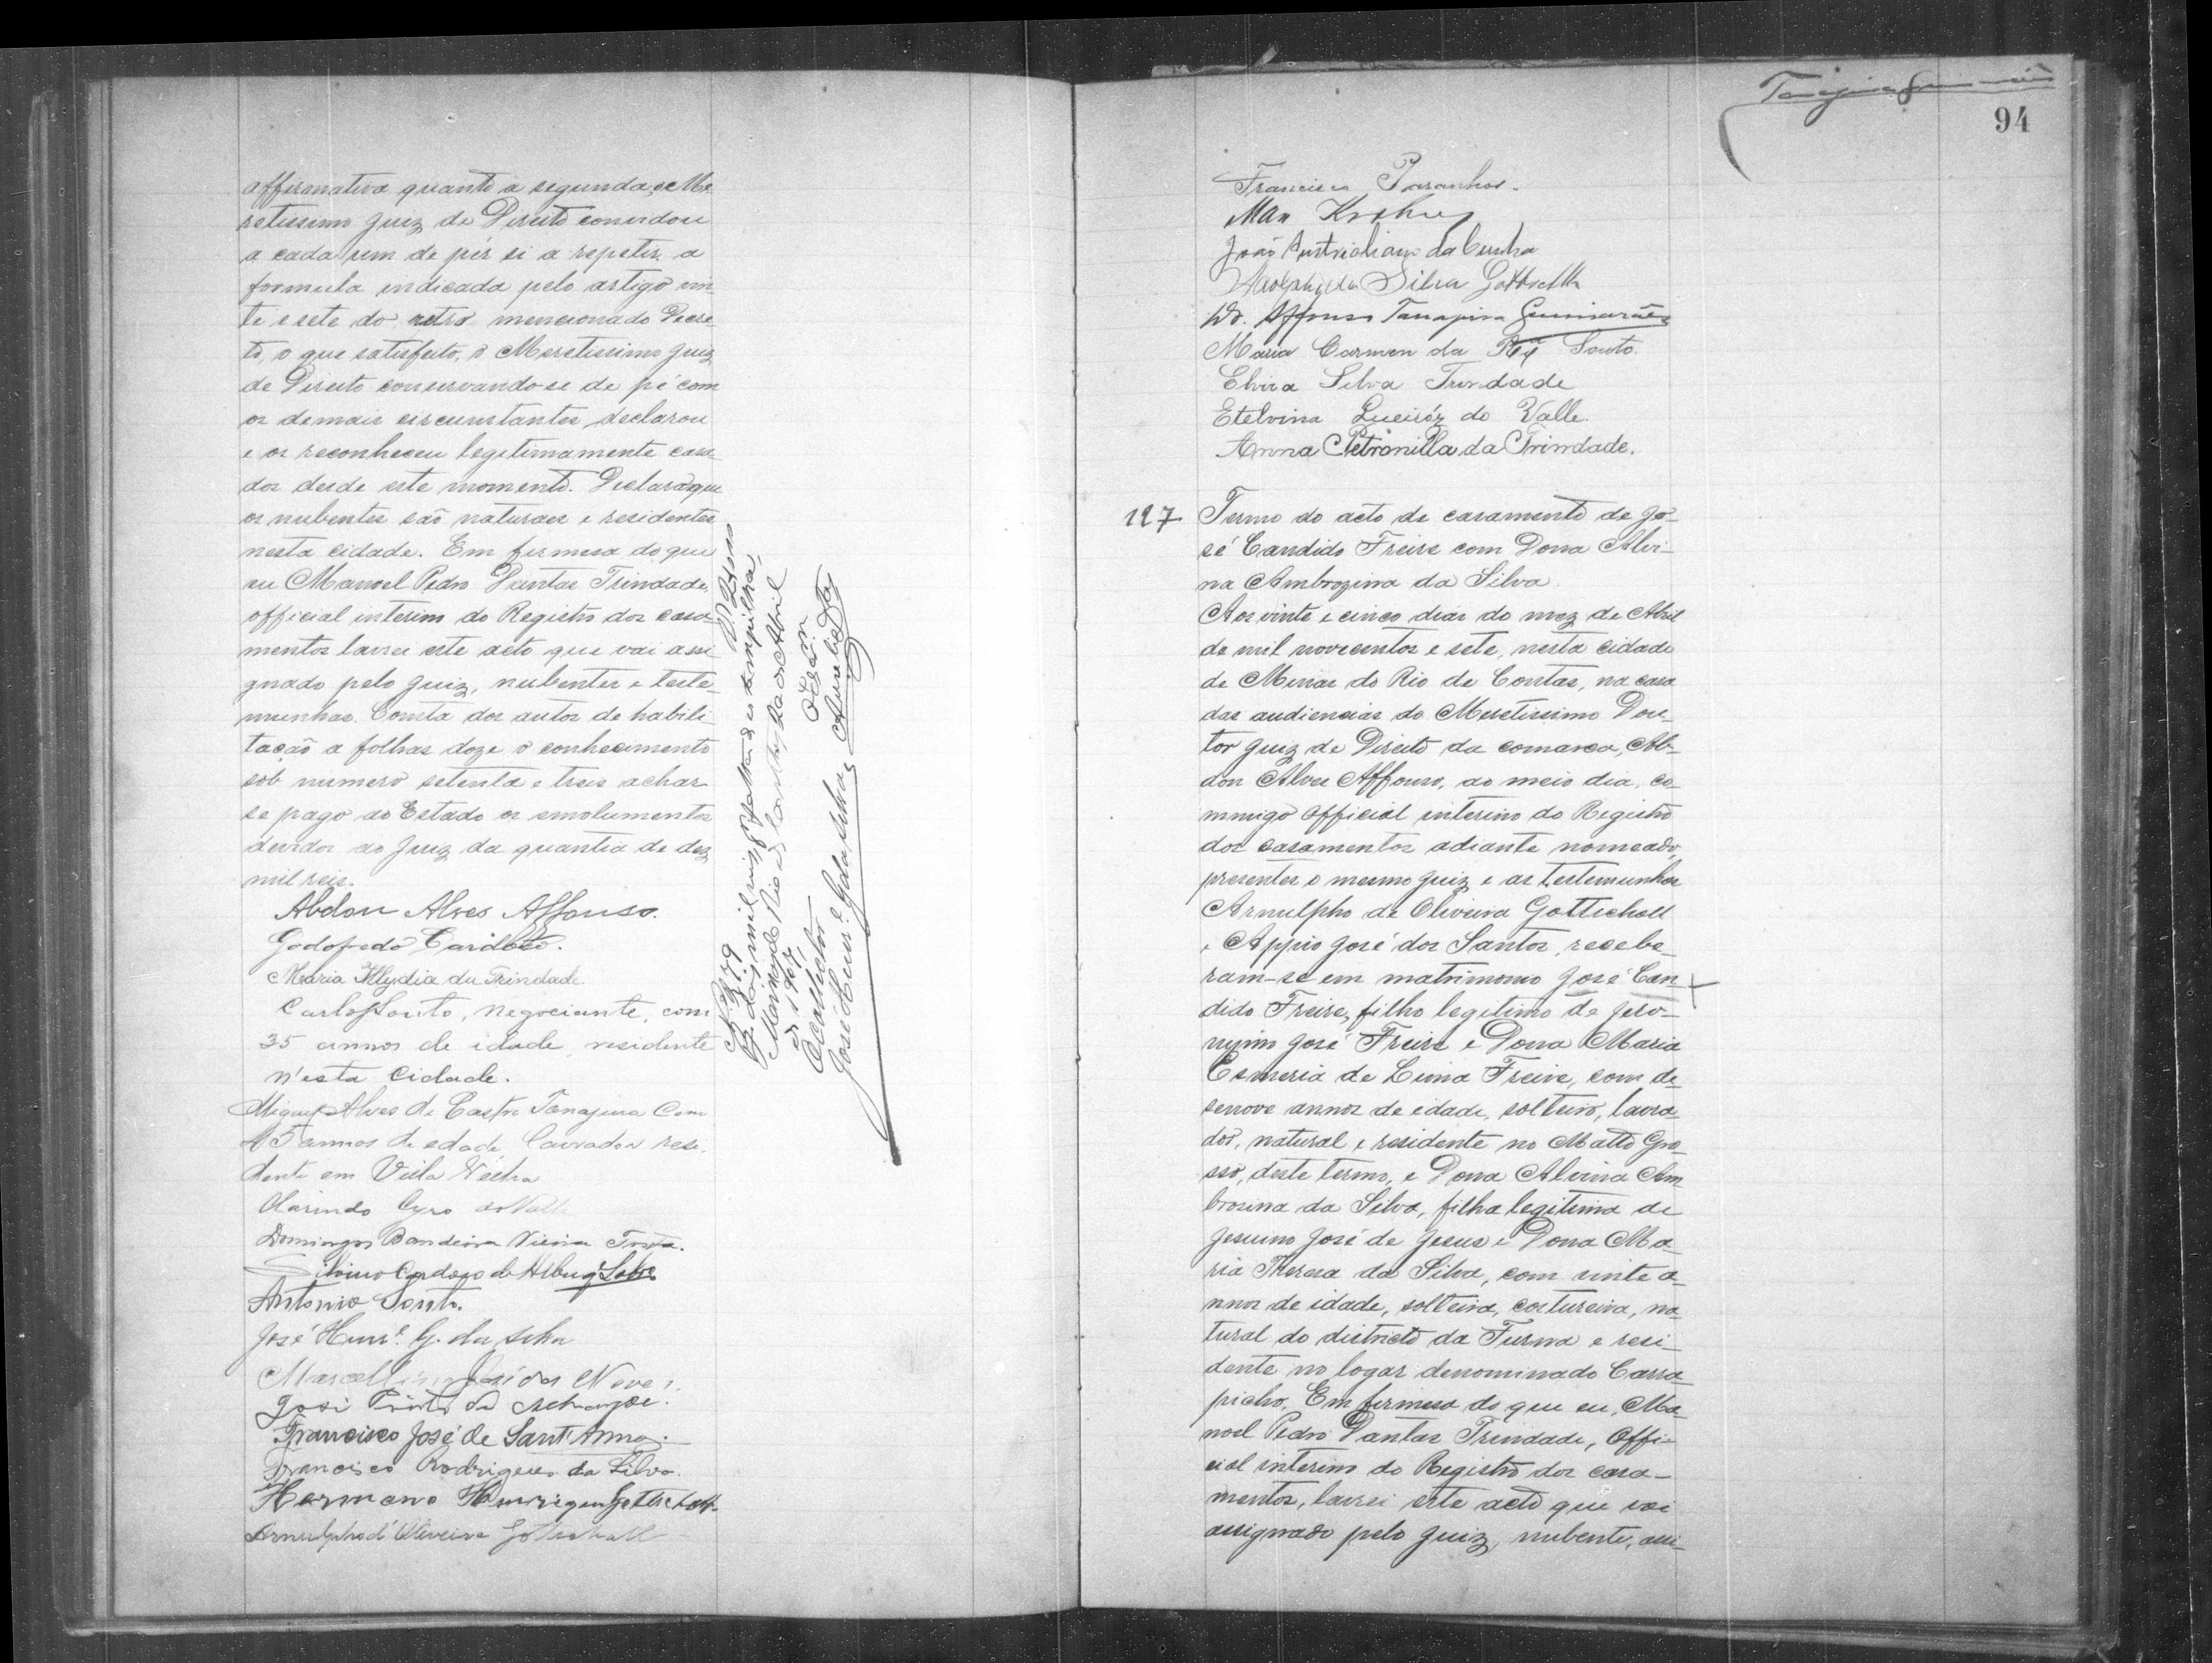 affirmativa quanto a segunda, o Me
retissimo Juiz de Direito convidou
a cada um de pér si a repetir a
formula indicada pelo artigo vin-
te e sete do retro mencionado Decre-
to, o que satisfeito, o Meretissimo Juiz
de Direito conservando-se de pé com
os demais circumstantes, declarou
e os reconheceu legitimamente casa-
dos desde este momento. Declara que
os nubentes são naturaes e residentes
nesta cidade. Em firmesa do que
eu Manoel Pedro Dantas Trindade,
official interim do Registro dos casa-
mentos lavrei este acto que vai assi-
gnado pelo Juiz, nubentes e teste-
munhas. Consta dos autos de habili-
tação a folhas doze o conhecimento
sob numero setenta e tres achar-
se pago ao Estado os emolumentos
devidos ao Juiz da quantia de dez
mil reis.
Abdon Alves Affonso.
Godofredo Cardoso.
Maria Illydia da Trindade
Carlos Souto, negociante, com
35 annos de idade, residente
n'esta Cidade.
Miguel Alves de Castro Tanajura Com
45 annos de edade lavrador resi-
dente em Villa Velha
Clarindo Cyro do Valle
Domingos Bandeira Vieira
Silvino Cardoso de
Antonio Souto.
José Henr.e G. da Silva
Marcellino José das Neves.
José Pinto de
Francisco José de Sant'Anna.
Francisco Rodrigues da Silva.
Hermano Henrique Gottschall
Arnulpho d'Oliveira Gottschall
N. 79
dois mil reis
Minas do Rio de Contas, de Abril
de 1907
O Collector O Escr.
José Henr.e G da Silva Aurelio
94
Francisco Paranhos.
Max
João Austricliano da Cunha
Adolpho da Silva Gottschall
Dr. Affonso Tanajura Guimarães
Maria Carmen da Souto.
Elvira Silva Trindade
Etelvina Queiróz do Valle.
Anna Petronilla da Trindade.
127 Termo do acto de casamento de Jo-
sé Candido Freire com Dona Alvi-
na Ambrozina da Silva
Aos vinte e cinco dias do mez de Abril
de mil novecentos e sete, nesta cidade
de Minas do Rio de Contas, na casa
das audiencias do Meretissimo Dou-
tor Juiz de Direito da comarca, Ab-
don Alves Affonso, ao meio dia, co-
mmigo Official interino do Registro
dos casamentos adiante nomeado,
presentes o mesmo Juiz e as testemunhas
Arnulpho de Oliveira Gottschall
e Appio José dos Santos, recebe-
ram-se em matrimonio José Can-
dido Freire, filho legitimo de Jero-
nymo José Freire e Dona Maria
Esmeria de Lima Freire, com de-
senove annos de edade, solteiro, lavra-
dor, natural e residente no Matto Gro-
sso, deste termo, e Dona Alvina Am-
brosina da Silva, filha legitima de
Jesuino José de Jesus e Dona Ma-
ria Theresa da Silva, com vinte a-
nnos de idade, solteira, costureira, na-
tural do districto da Furna e resi-
dente no logar denominado Carra-
picho. Em firmesa do que eu, Ma-
noel Pedro Dantas Trindade, Offi-
cial interino do Registro dos casa-
mentos, lavrei este acto que vai
assignado pelo Juiz, nubente, assi-